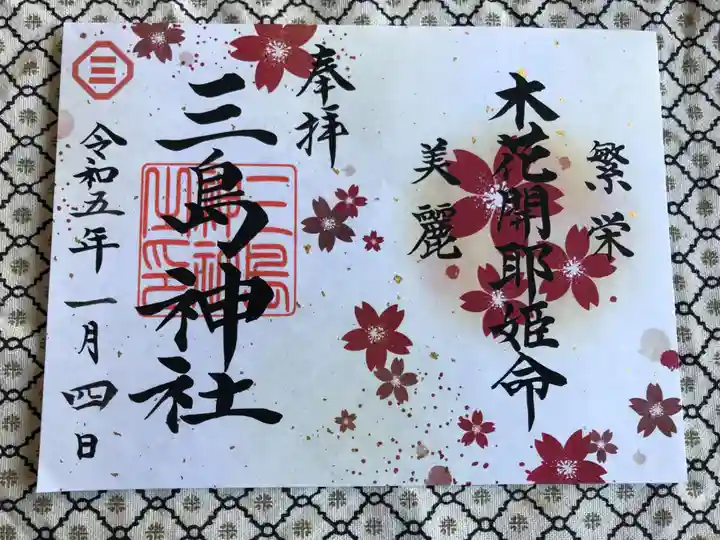 繁栄
木花開耶姫命
美麗
奉拝
三島神社
三島神社之印
令和五年一月四日
三